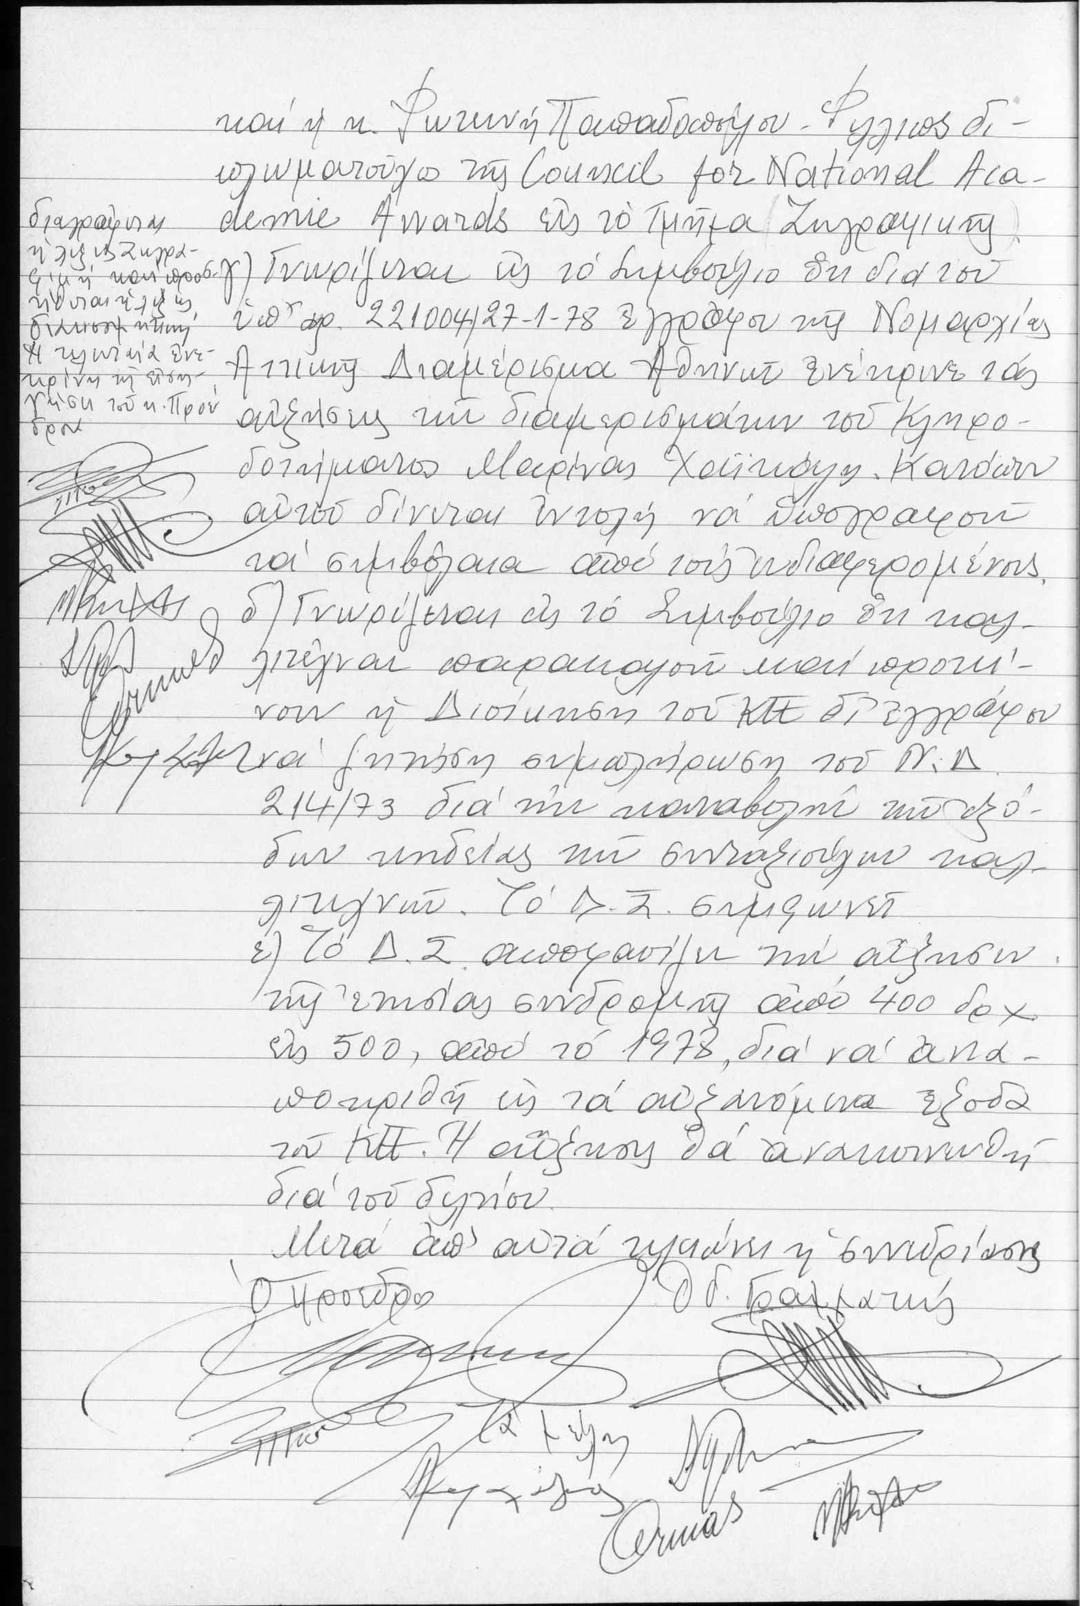 καί ἡ κ. Φωτεινή Παπαδοπούλου - Φίλιπος δι-
πλωματούχος τῆς Council for National Aca-
demic Awards εἰς τό Τμῆμα Ζωγραφικῆς
γ) Γνωρίζεται εἰς τό Συμβούλιο ὅτι διά τοῦ
ὑπ' ἀρ. 221004/27-1-78 ἐγγράφου τῆς Νομαρχίας
Ἀττικῆς Διαμέρισμα Ἀθηνῶν ἐνέκρινε τάς
αὐξήσεις τῶν διαμερισμάτων τοῦ Κληρο-
δοτήματος Μαρίνας . Κατόπιν
αὐτοῦ δίνεται ἐντολή νά ὑπογραφοῦν
τά συμβόλαια ἀπό τούς ἐνδιαφερομένους.
δ) Γνωρίζεται εἰς τό Συμβούλιο ὅτι καλ-
λιτέχναι παρακαλοῦν καί προτεί-
νουν ἡ Διοίκηση τοῦ ΚΤΕ δι' ἐγγράφου
νά ζητήση συμπλήρωση τοῦ Ν.Δ.
214/73 διά τήν καταβολήν τῶν ἐξό-
δων κηδείας τῶν συνταξιούχων καλ-
λιτεχνῶν. Τό Δ.Σ. συμφωνεῖ
ε) Τό Δ.Σ. ἀποφασίζει τήν αὔξησιν
τῆς ἐτησίας συνδρομῆς ἀπό 400 δρχ
εἰς 500, ἀπό τό 1978, διά νά ἀντα-
ποκριθῆ εἰς τά αὐξανόμενα ἔξοδα
τοῦ ΚΤΕ. Ἡ αὔξησις θά ἀνακοινωθῆ
διά τοῦ δελτίου.
Μετά ἀπ' αὐτά τελειώνει ἡ συνεδρίασις
Ὁ Πρόεδρος
Ὁ Γραμματεύς
Τά μέλη
διαγράφεται
ἡ λέξις Ζωγρα-
φική καί προσ-
τίθεται ἡ λέξις
διακοσμητική
Ἡ τελευταία ἐνε-
κρίνη τῇ εἰση-
γήσει τοῦ κ. Προέ
δρου